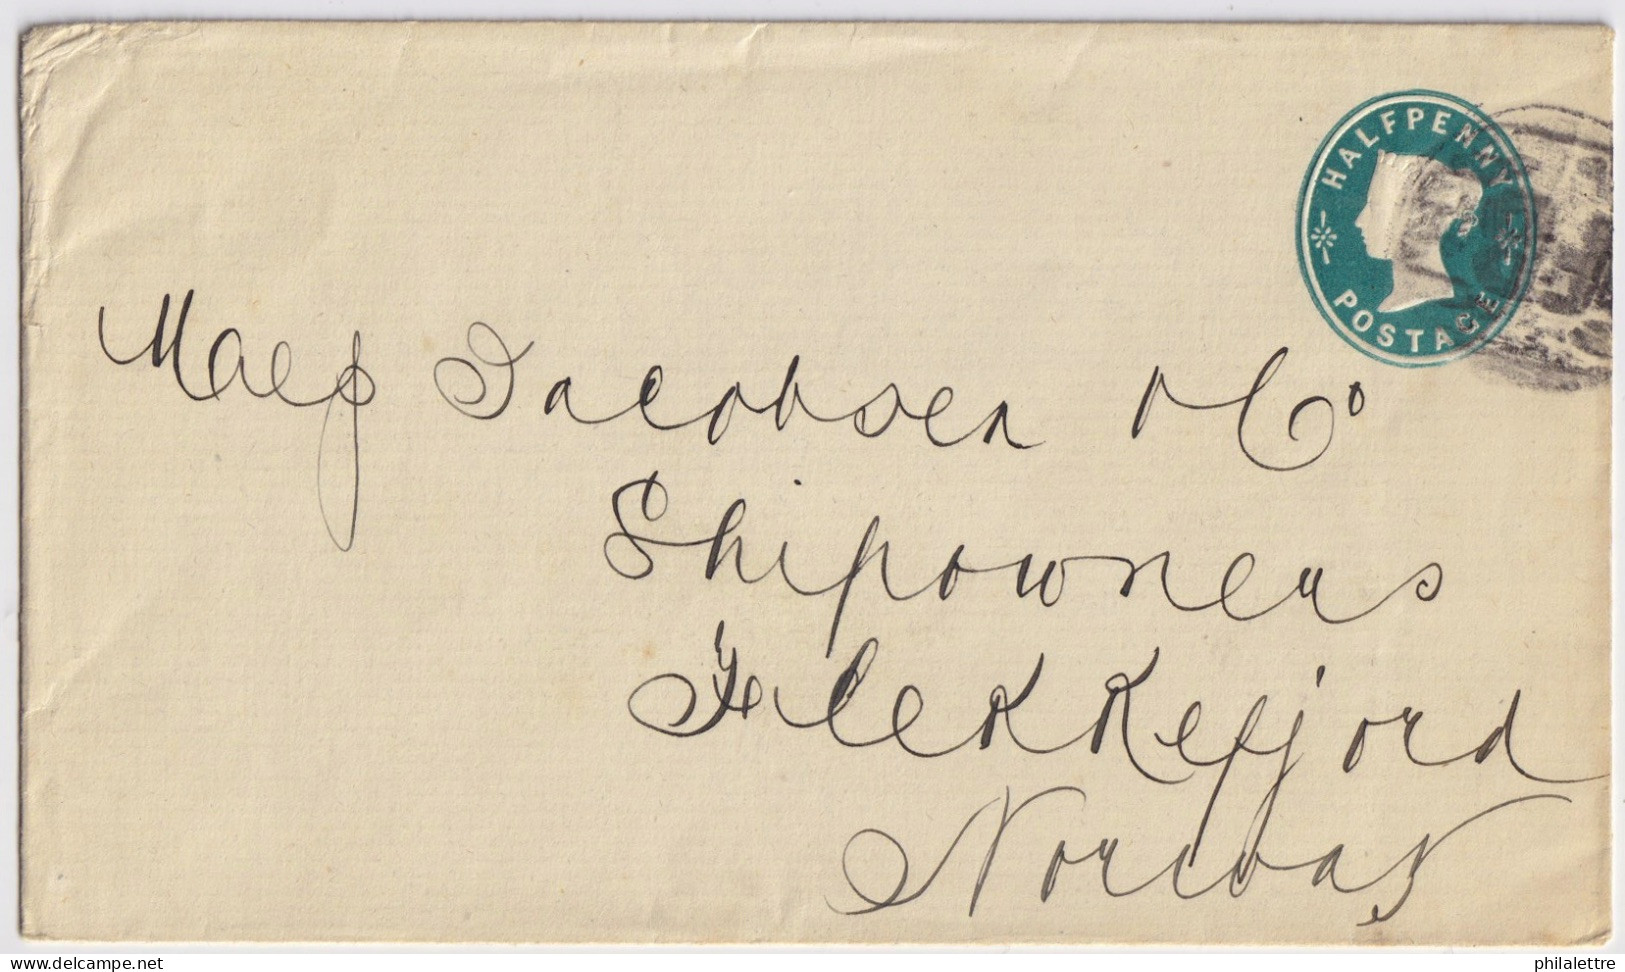 HALFPENNY
POSTAGE
Jacobsen & Co
Shipowners
Flekkefjord
Norway
www.delcampe.net
philalettre